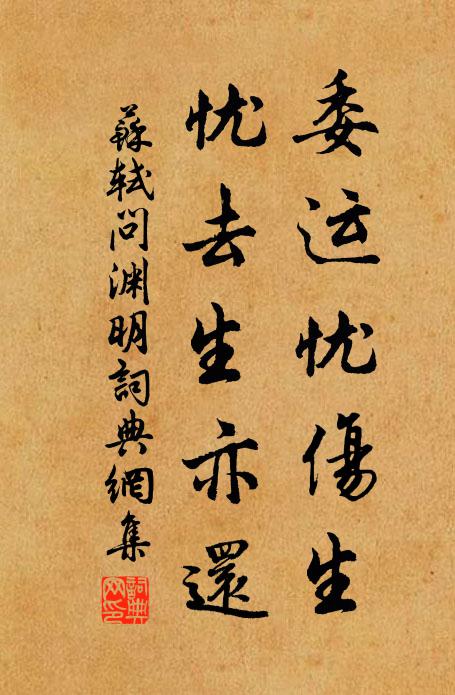 委运忧傷生
忧去生亦還
蘇軾問渊明詞典網集
詞典
网印